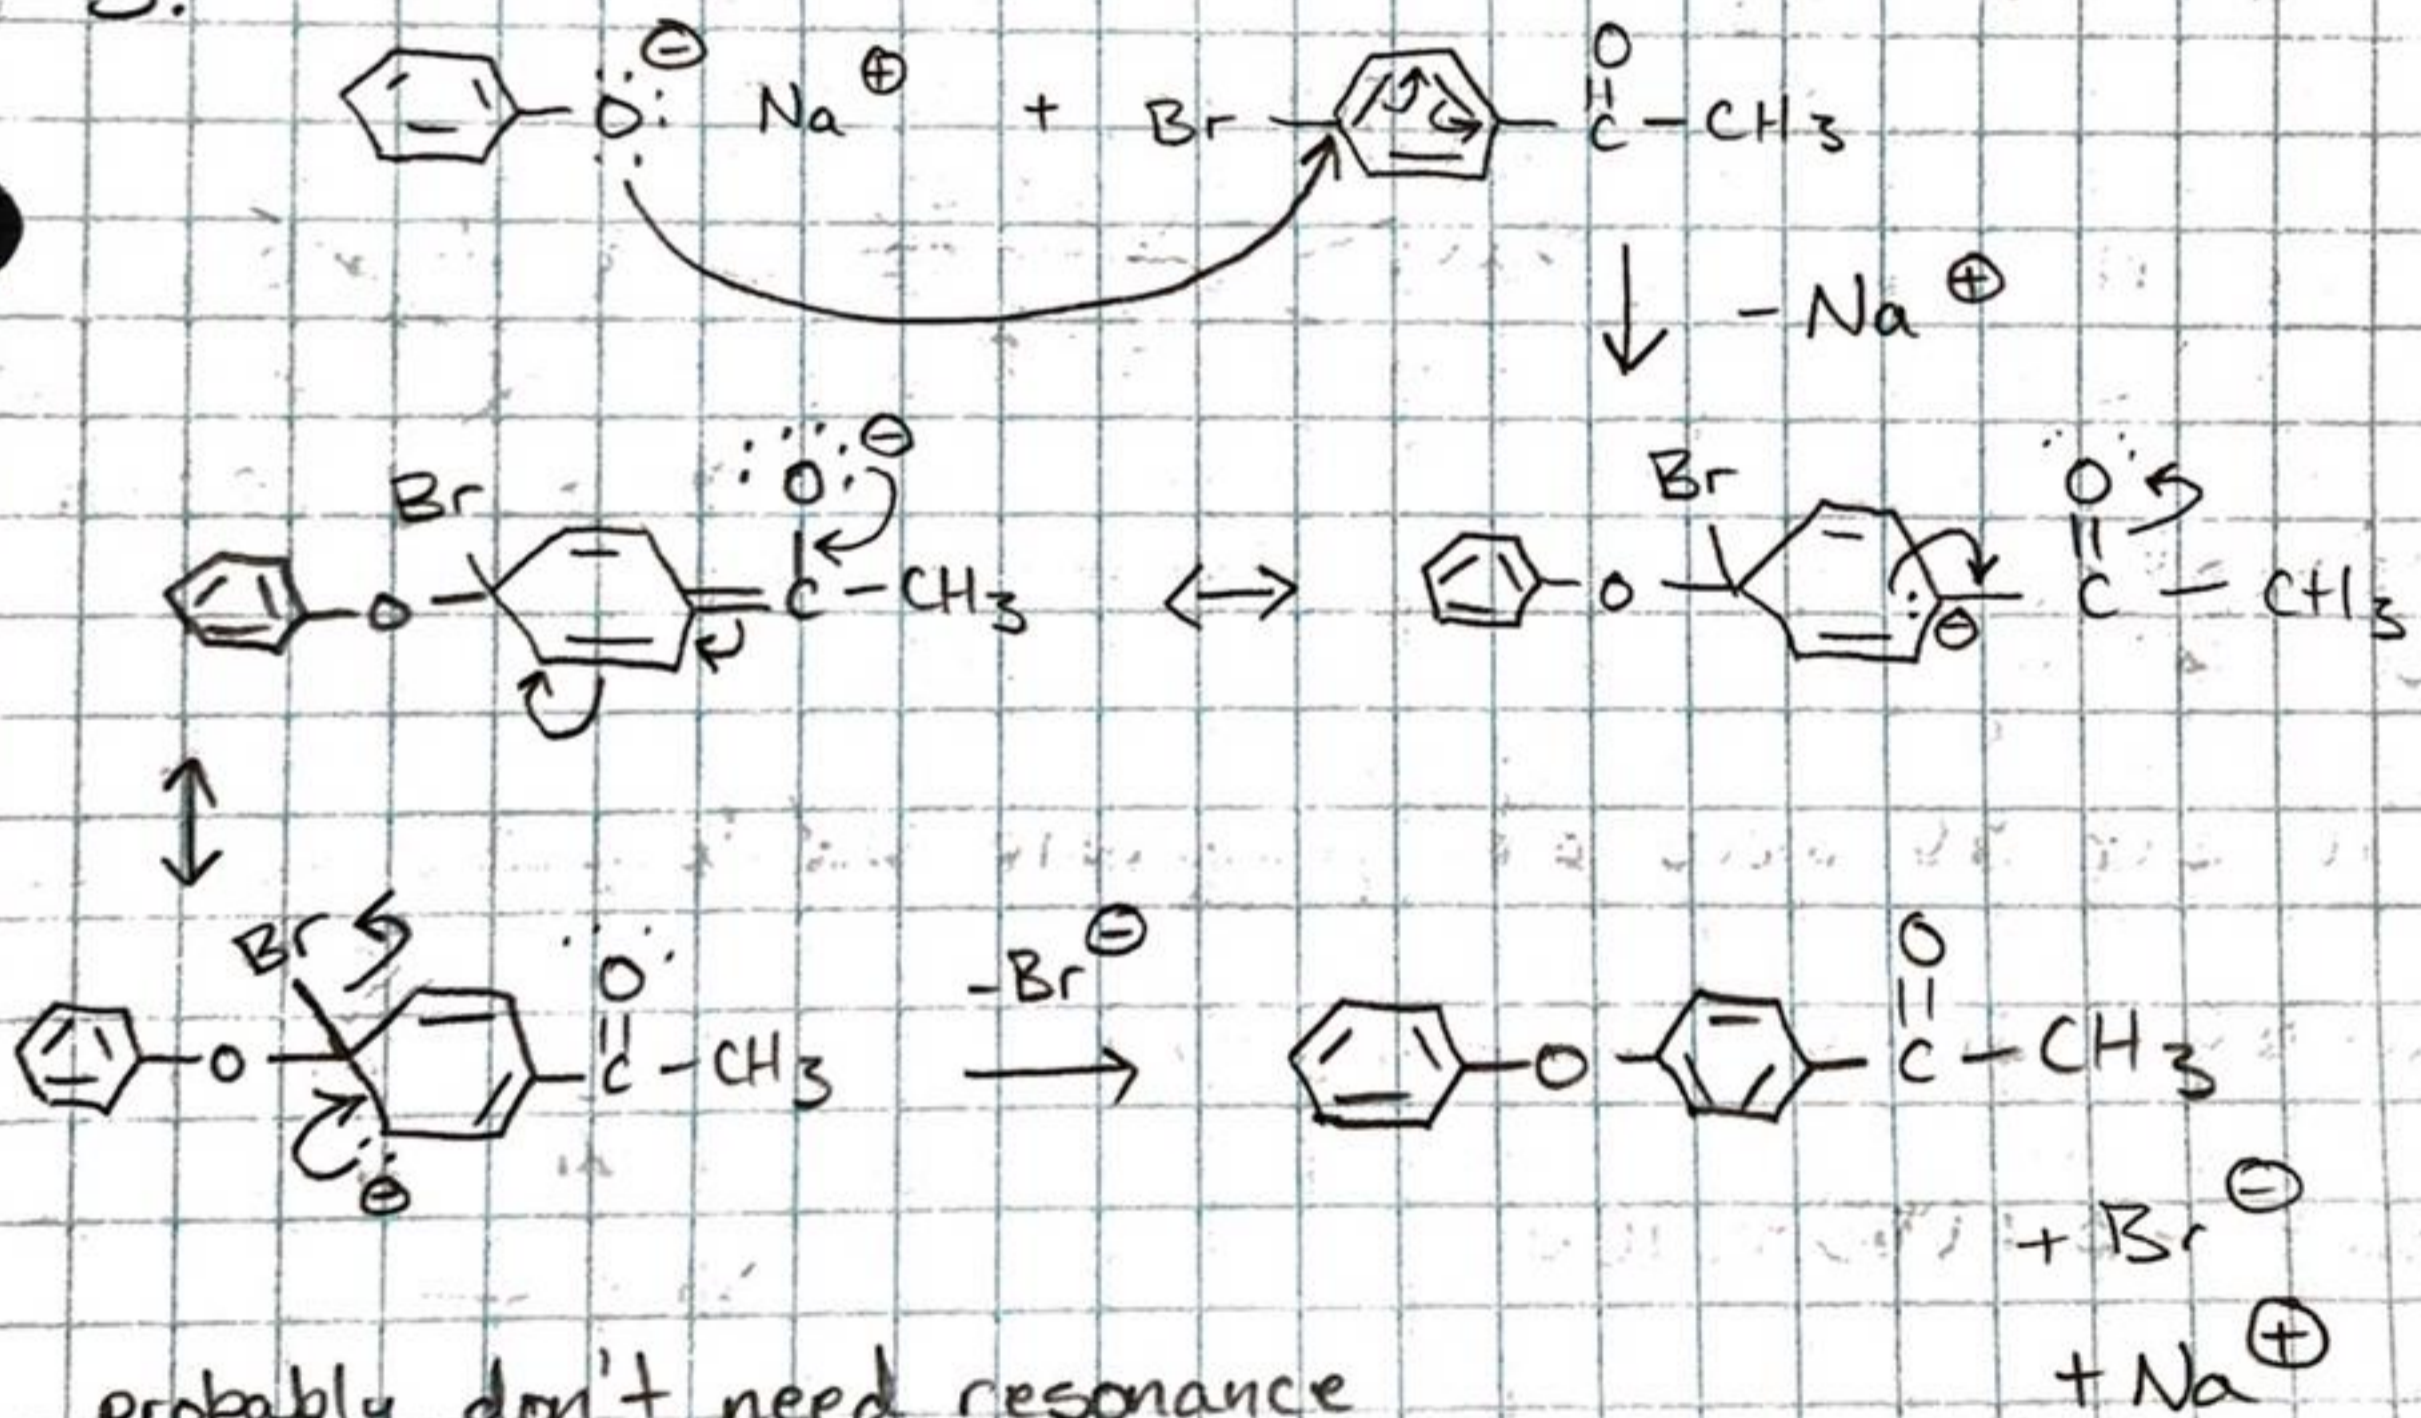 O: ⊖ Na ⊕ + Br O
C - CH3
- Na ⊕
Br O ⊖ Br O
O C - CH3 ↔ O ⊖ C - CH3
Br O -Br ⊖ O
O C - CH3 → O C - CH3
⊖
+ Br ⊖
+ Na ⊕
probably don't need resonance